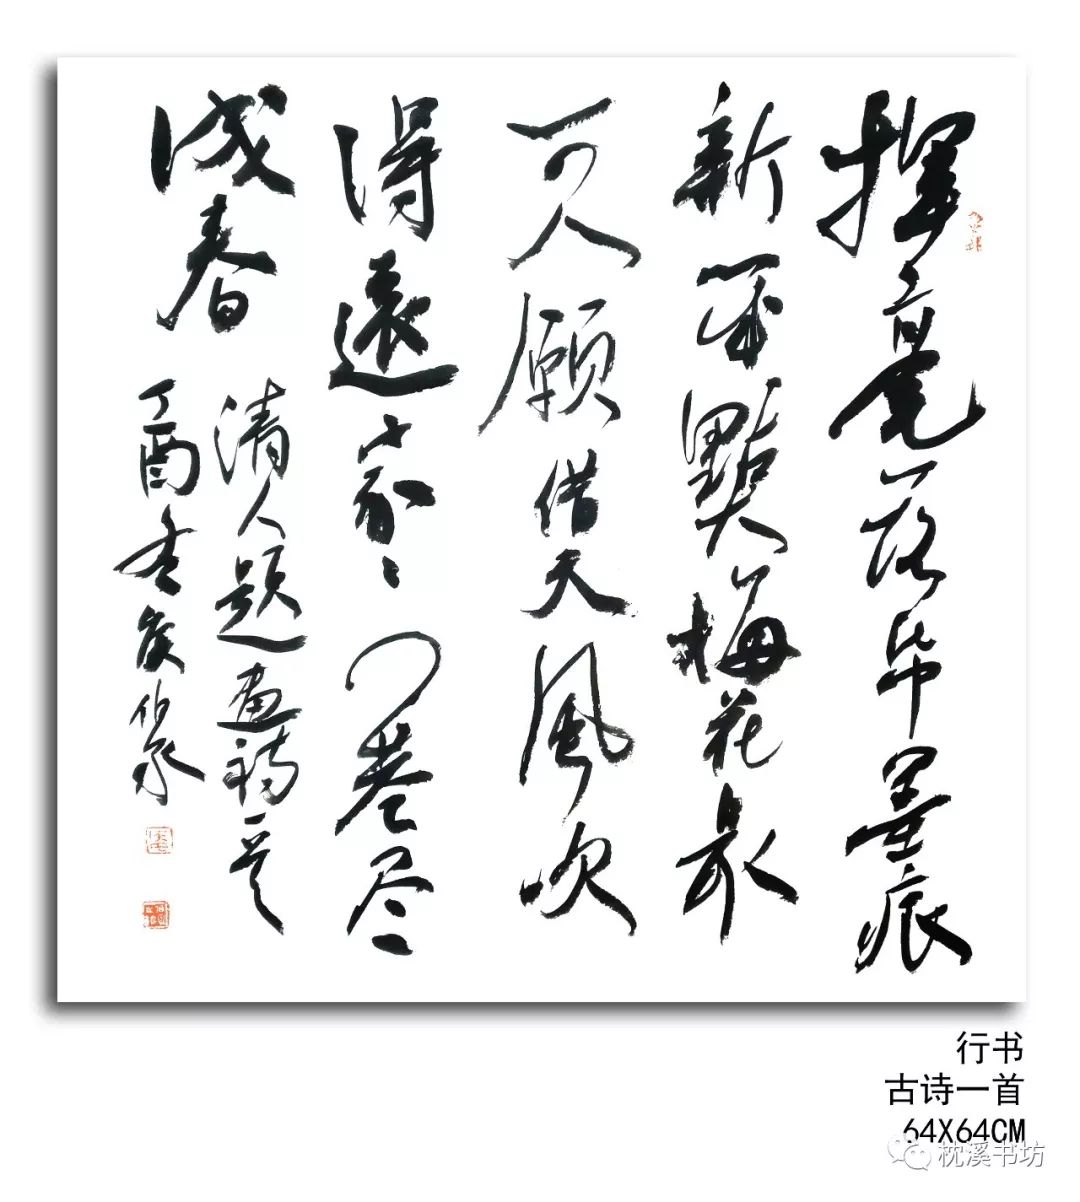 揮毫落帋墨痕
新幾點梅花最
可人願借天風吹
得遠家〻門巷尽
成春
清人題畫詩一首
丁酉
行书
古诗一首
64X64CM
枕溪书坊